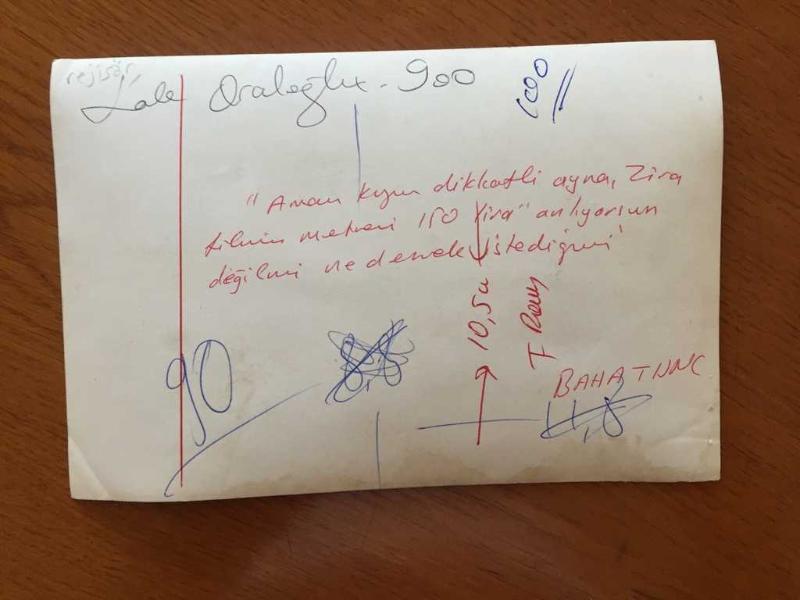 rejisör
Lale Oraloğlu - 900
1000
"Aman kızım dikkatli oyna, Zira
filmin metresi 150 lira" anlıyorsun
değilmi ne demek istediğimi
10,5u
90
BAHA TUNÇ
11,8